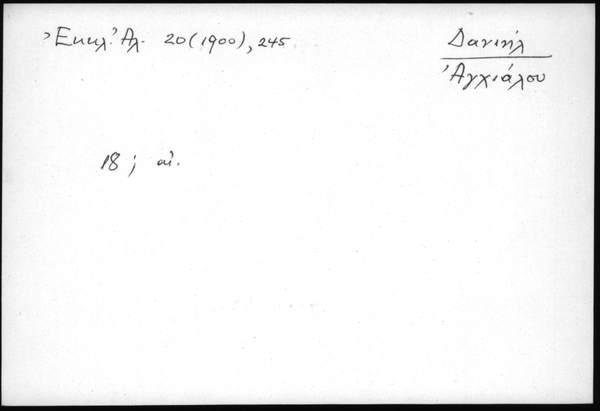 Ἐκκλ. Ἀλ. 20 (1900), 245
Δανιήλ
Ἀγχιάλου
18 ; αἰ.